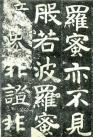 羅蜜亦不見
般若波羅蜜
典非證非